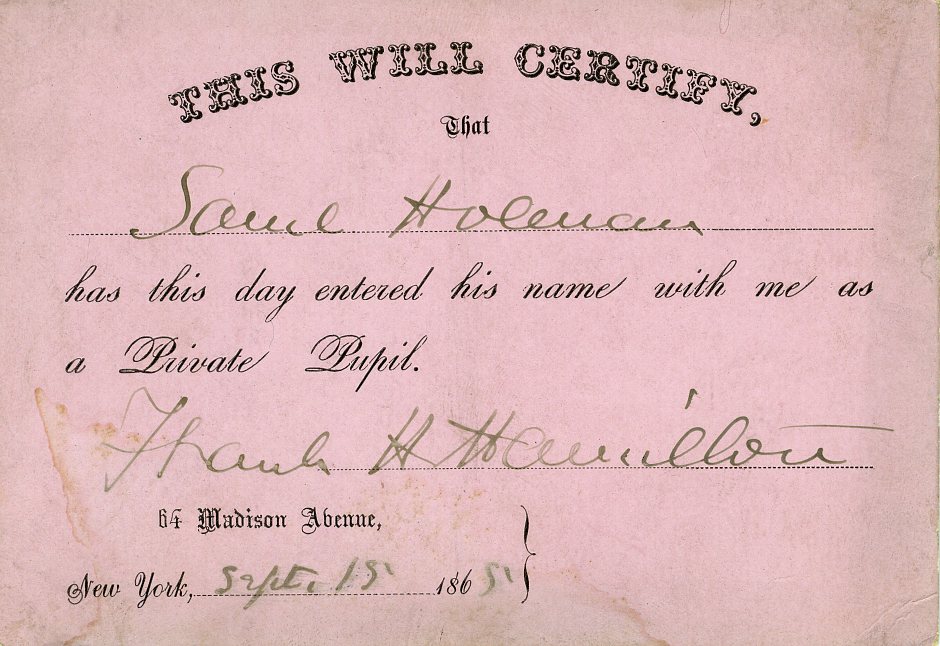 THIS WILL CERTIFY,
That
Saml Holman
has this day entered his name with me as
a Private Pupil.
Frank H Hamilton
64 Madison Avenue,
New York, Sept. 15 1865